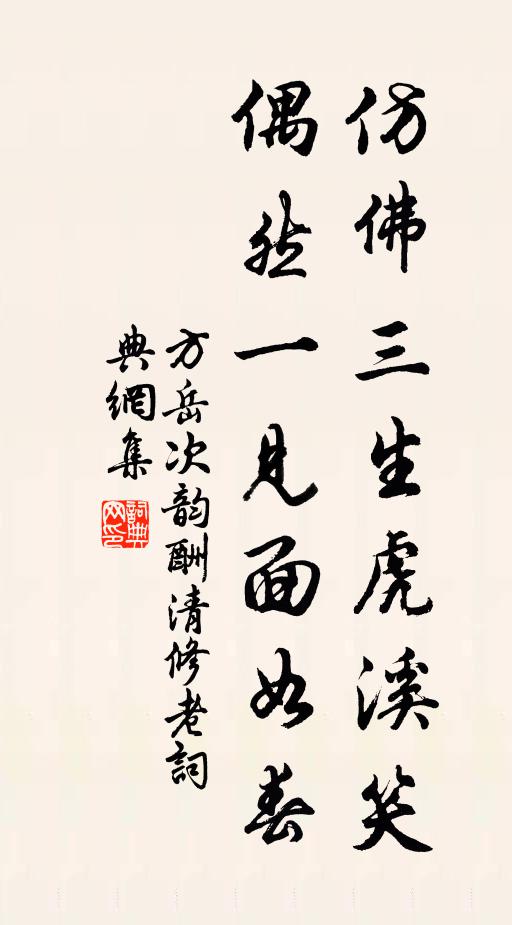 仿佛三生虎溪笑
偶然一见面如春
方岳次韵酬清修老詞
典網集
詞典网印